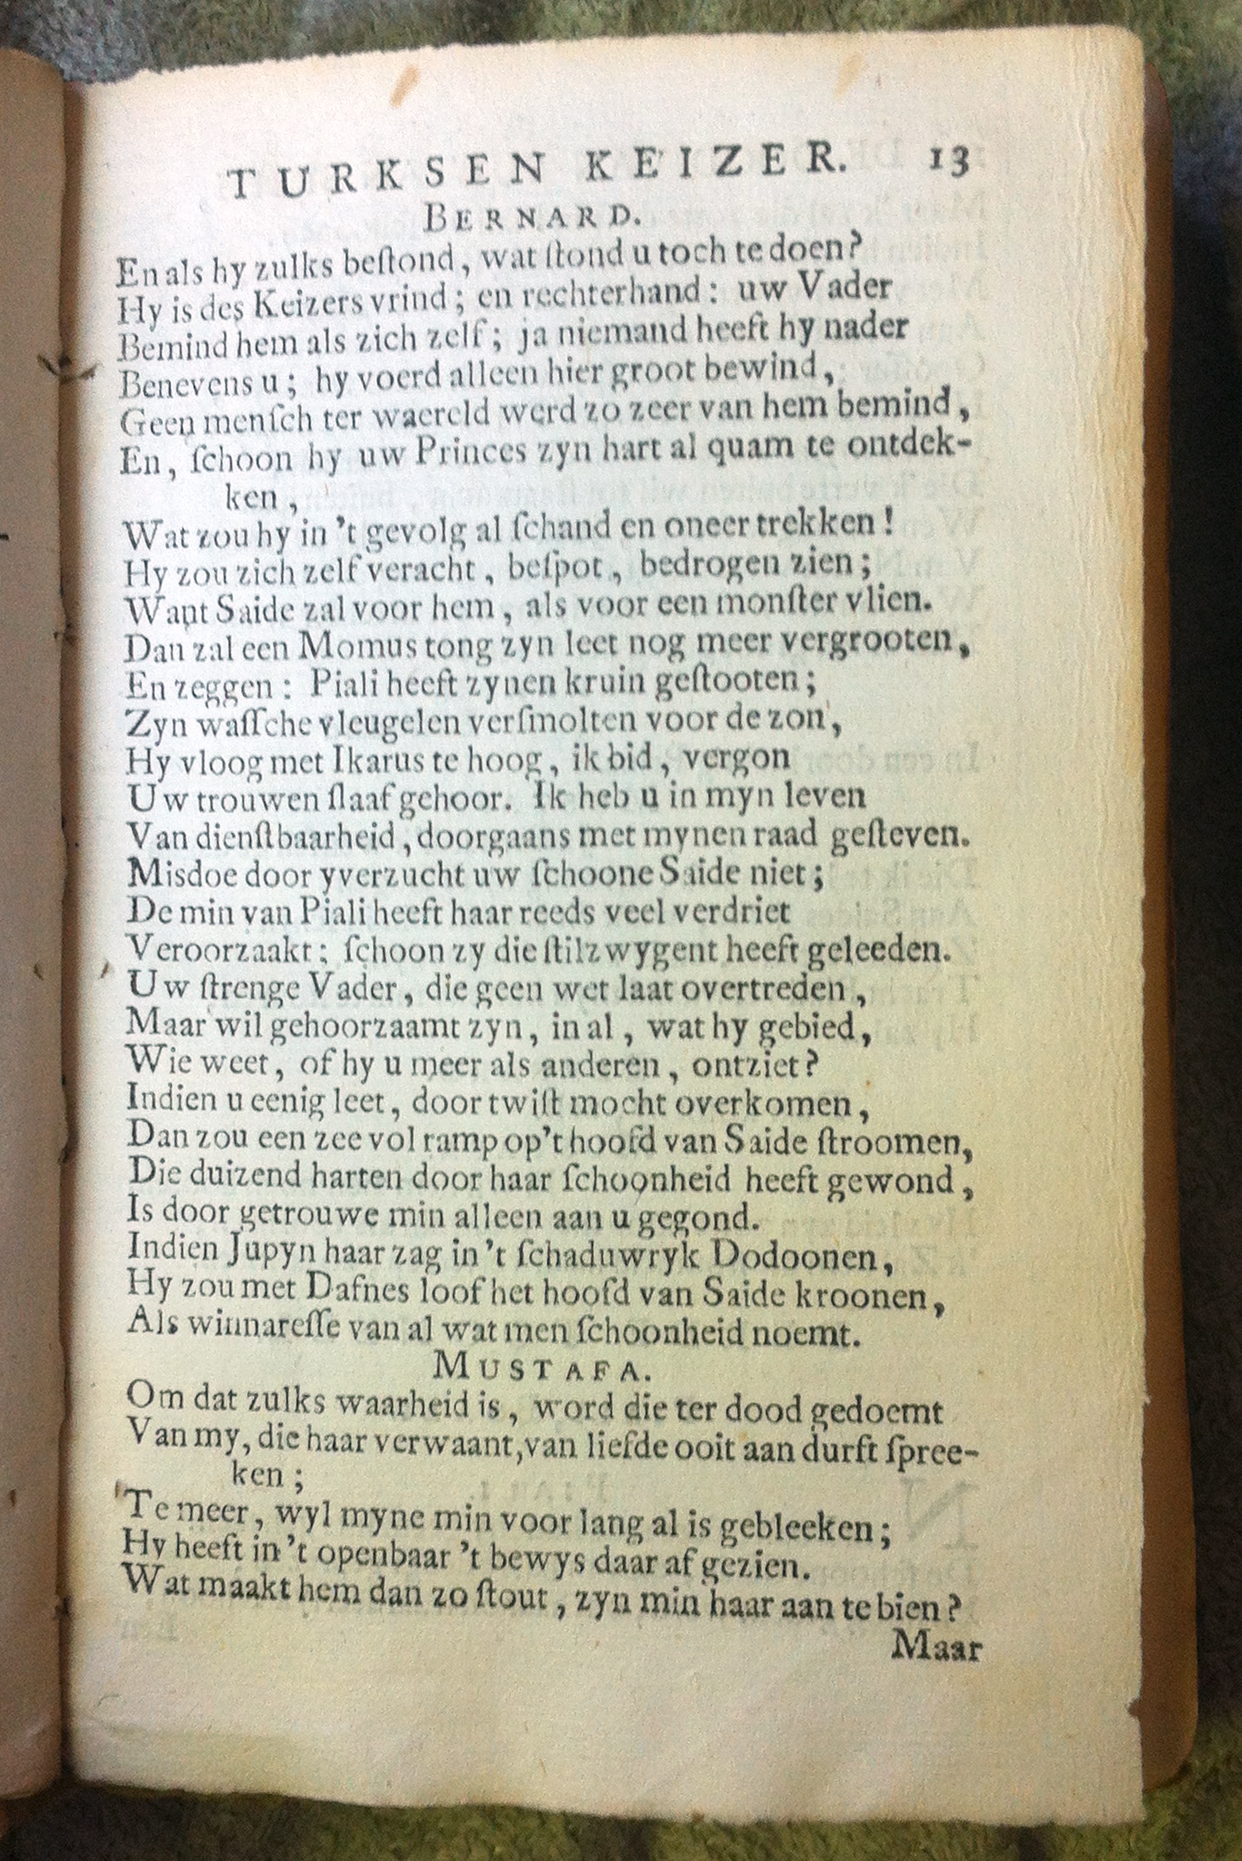 TURKSEN KEIZER. 13
BERNARD.
En als hy zulks beſtond, wat ſtond u toch te doen?
Hy is des Keizers vrind; en rechterhand: uw Vader
Bemind hem als zich zelf; ja niemand heeft hy nader
Benevens u; hy voerd alleen hier groot bewind,
Geen menſch ter waereld werd zo zeer van hem bemind,
En, ſchoon hy uw Princes zyn hart al quam te ontdek-
ken,
Wat zou hy in 't gevolg al ſchand en oneer trekken!
Hy zou zich zelf veracht, beſpot, bedrogen zien;
Want Saide zal voor hem, als voor een monſter vlien.
Dan zal een Momus tong zyn leet nog meer vergrooten,
En zeggen: Piali heeft zynen kruin geſtooten;
Zyn waſſche vleugelen verſmolten voor de zon,
Hy vloog met Ikarus te hoog, ik bid, vergon
Uw trouwen ſlaaf gehoor. Ik heb u in myn leven
Van dienſtbaarheid, doorgaans met mynen raad geſteven.
Misdoe door yverzucht uw ſchoone Saide niet;
De min van Piali heeft haar reeds veel verdriet
Veroorzaakt; ſchoon zy die ſtilzwygent heeft geleeden.
Uw ſtrenge Vader, die geen wet laat overtreden,
Maar wil gehoorzaamt zyn, in al, wat hy gebied,
Wie weet, of hy u meer als anderen, ontziet?
Indien u eenig leet, door twiſt mocht overkomen,
Dan zou een zee vol ramp op't hoofd van Saide ſtroomen,
Die duizend harten door haar ſchoonheid heeft gewond,
Is door getrouwe min alleen aan u gegond.
Indien Jupyn haar zag in 't ſchaduwryk Dodoonen,
Hy zou met Dafnes loof het hoofd van Saide kroonen,
Als winnareſſe van al wat men ſchoonheid noemt.
MUSTAFA.
Om dat zulks waarheid is, word die ter dood gedoemt
Van my, die haar verwaant, van liefde ooit aan durft ſpree-
ken;
Te meer, wyl myne min voor lang al is gebleeken;
Hy heeft in 't openbaar 't bewys daar af gezien.
Wat maakt hem dan zo ſtout, zyn min haar aan te bien?
Maar